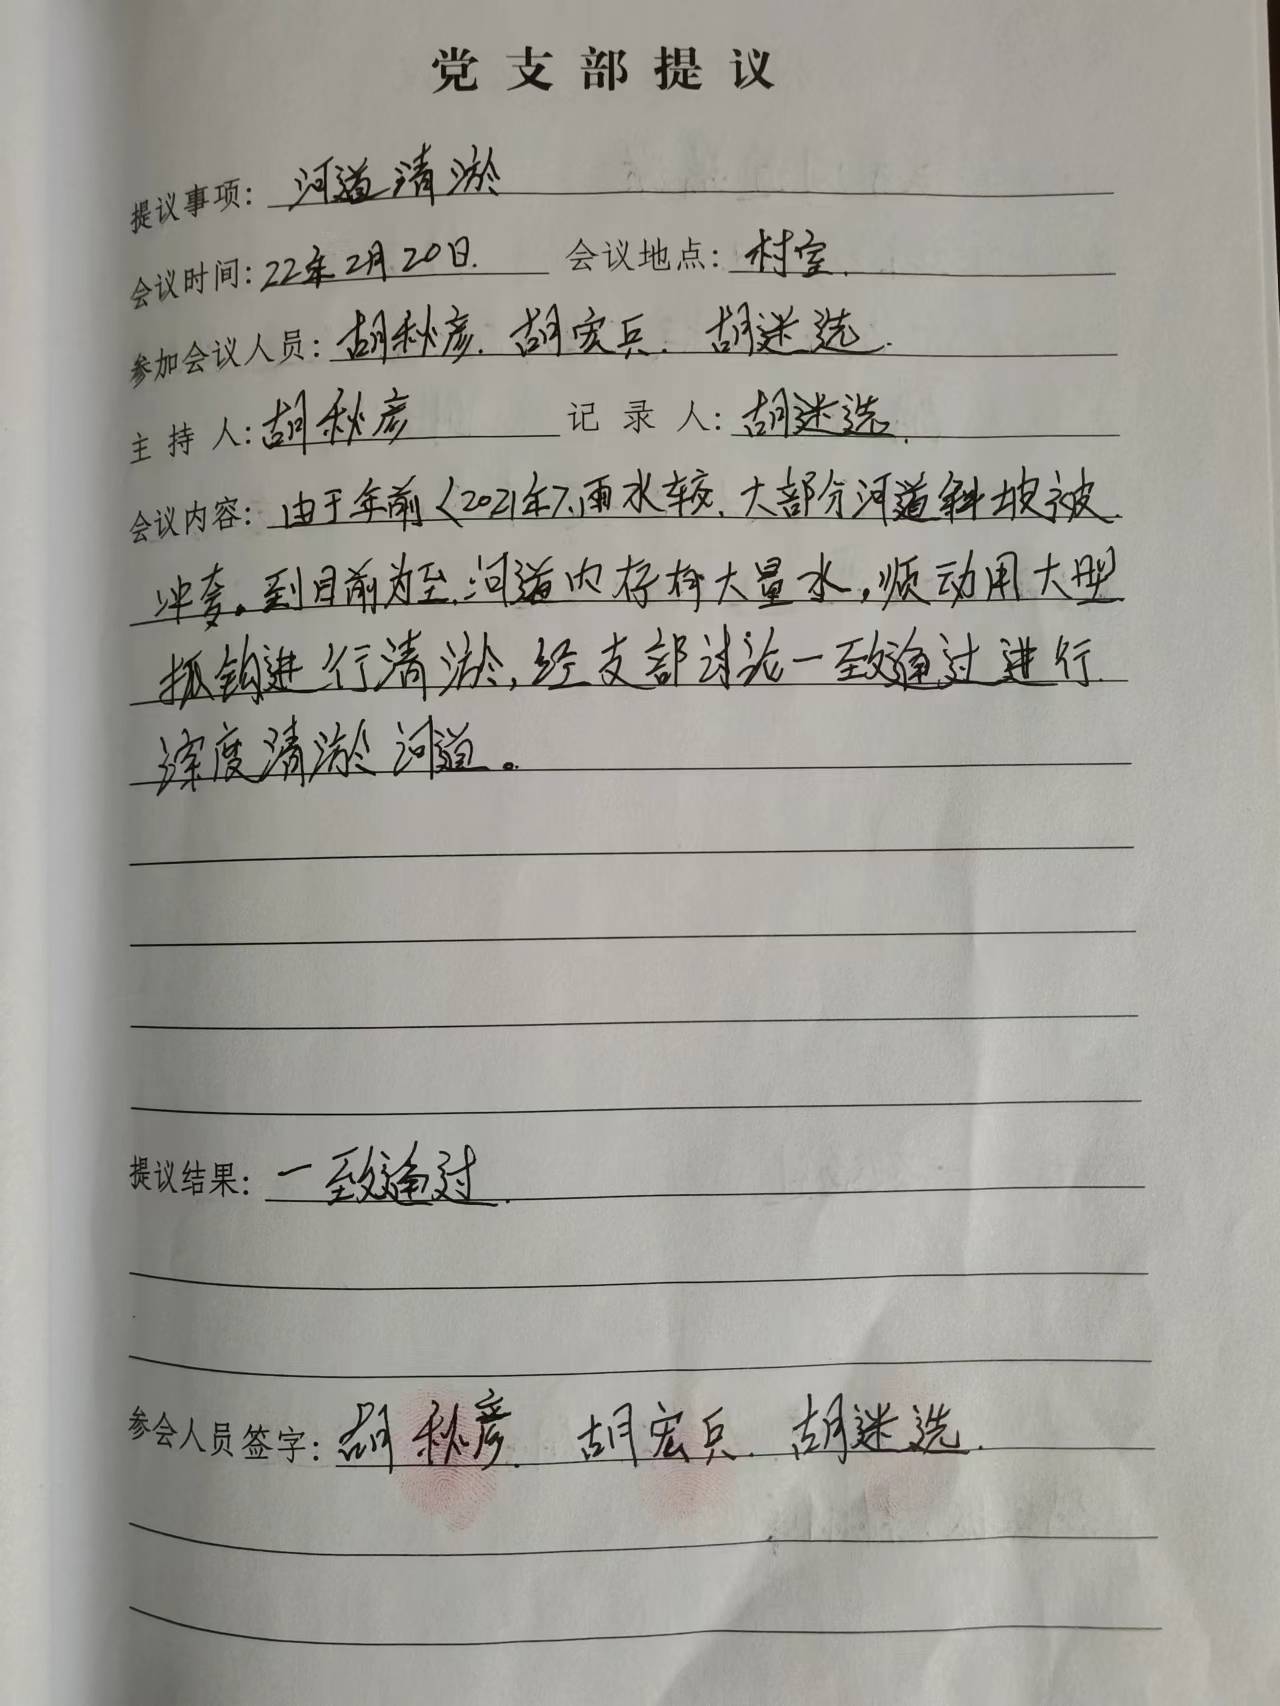 党支部提议
提议事项：河道清淤
会议时间：22年2月20日. 会议地点：村室.
参加会议人员：胡秋彦. 胡宏兵. 胡迷选.
主持人：胡秋彦 记录人：胡迷选.
会议内容：由于年前〈2021年〉雨水较. 大部分河道斜坡被.
冲垮。到目前为至.河道内存有大量水，须动用大型
抓钩进行清淤，经支部讨论一致通过进行.
深度清淤河道。
提议结果：一致通过.
参会人员签字：胡秋彦. 胡宏兵. 胡迷选.